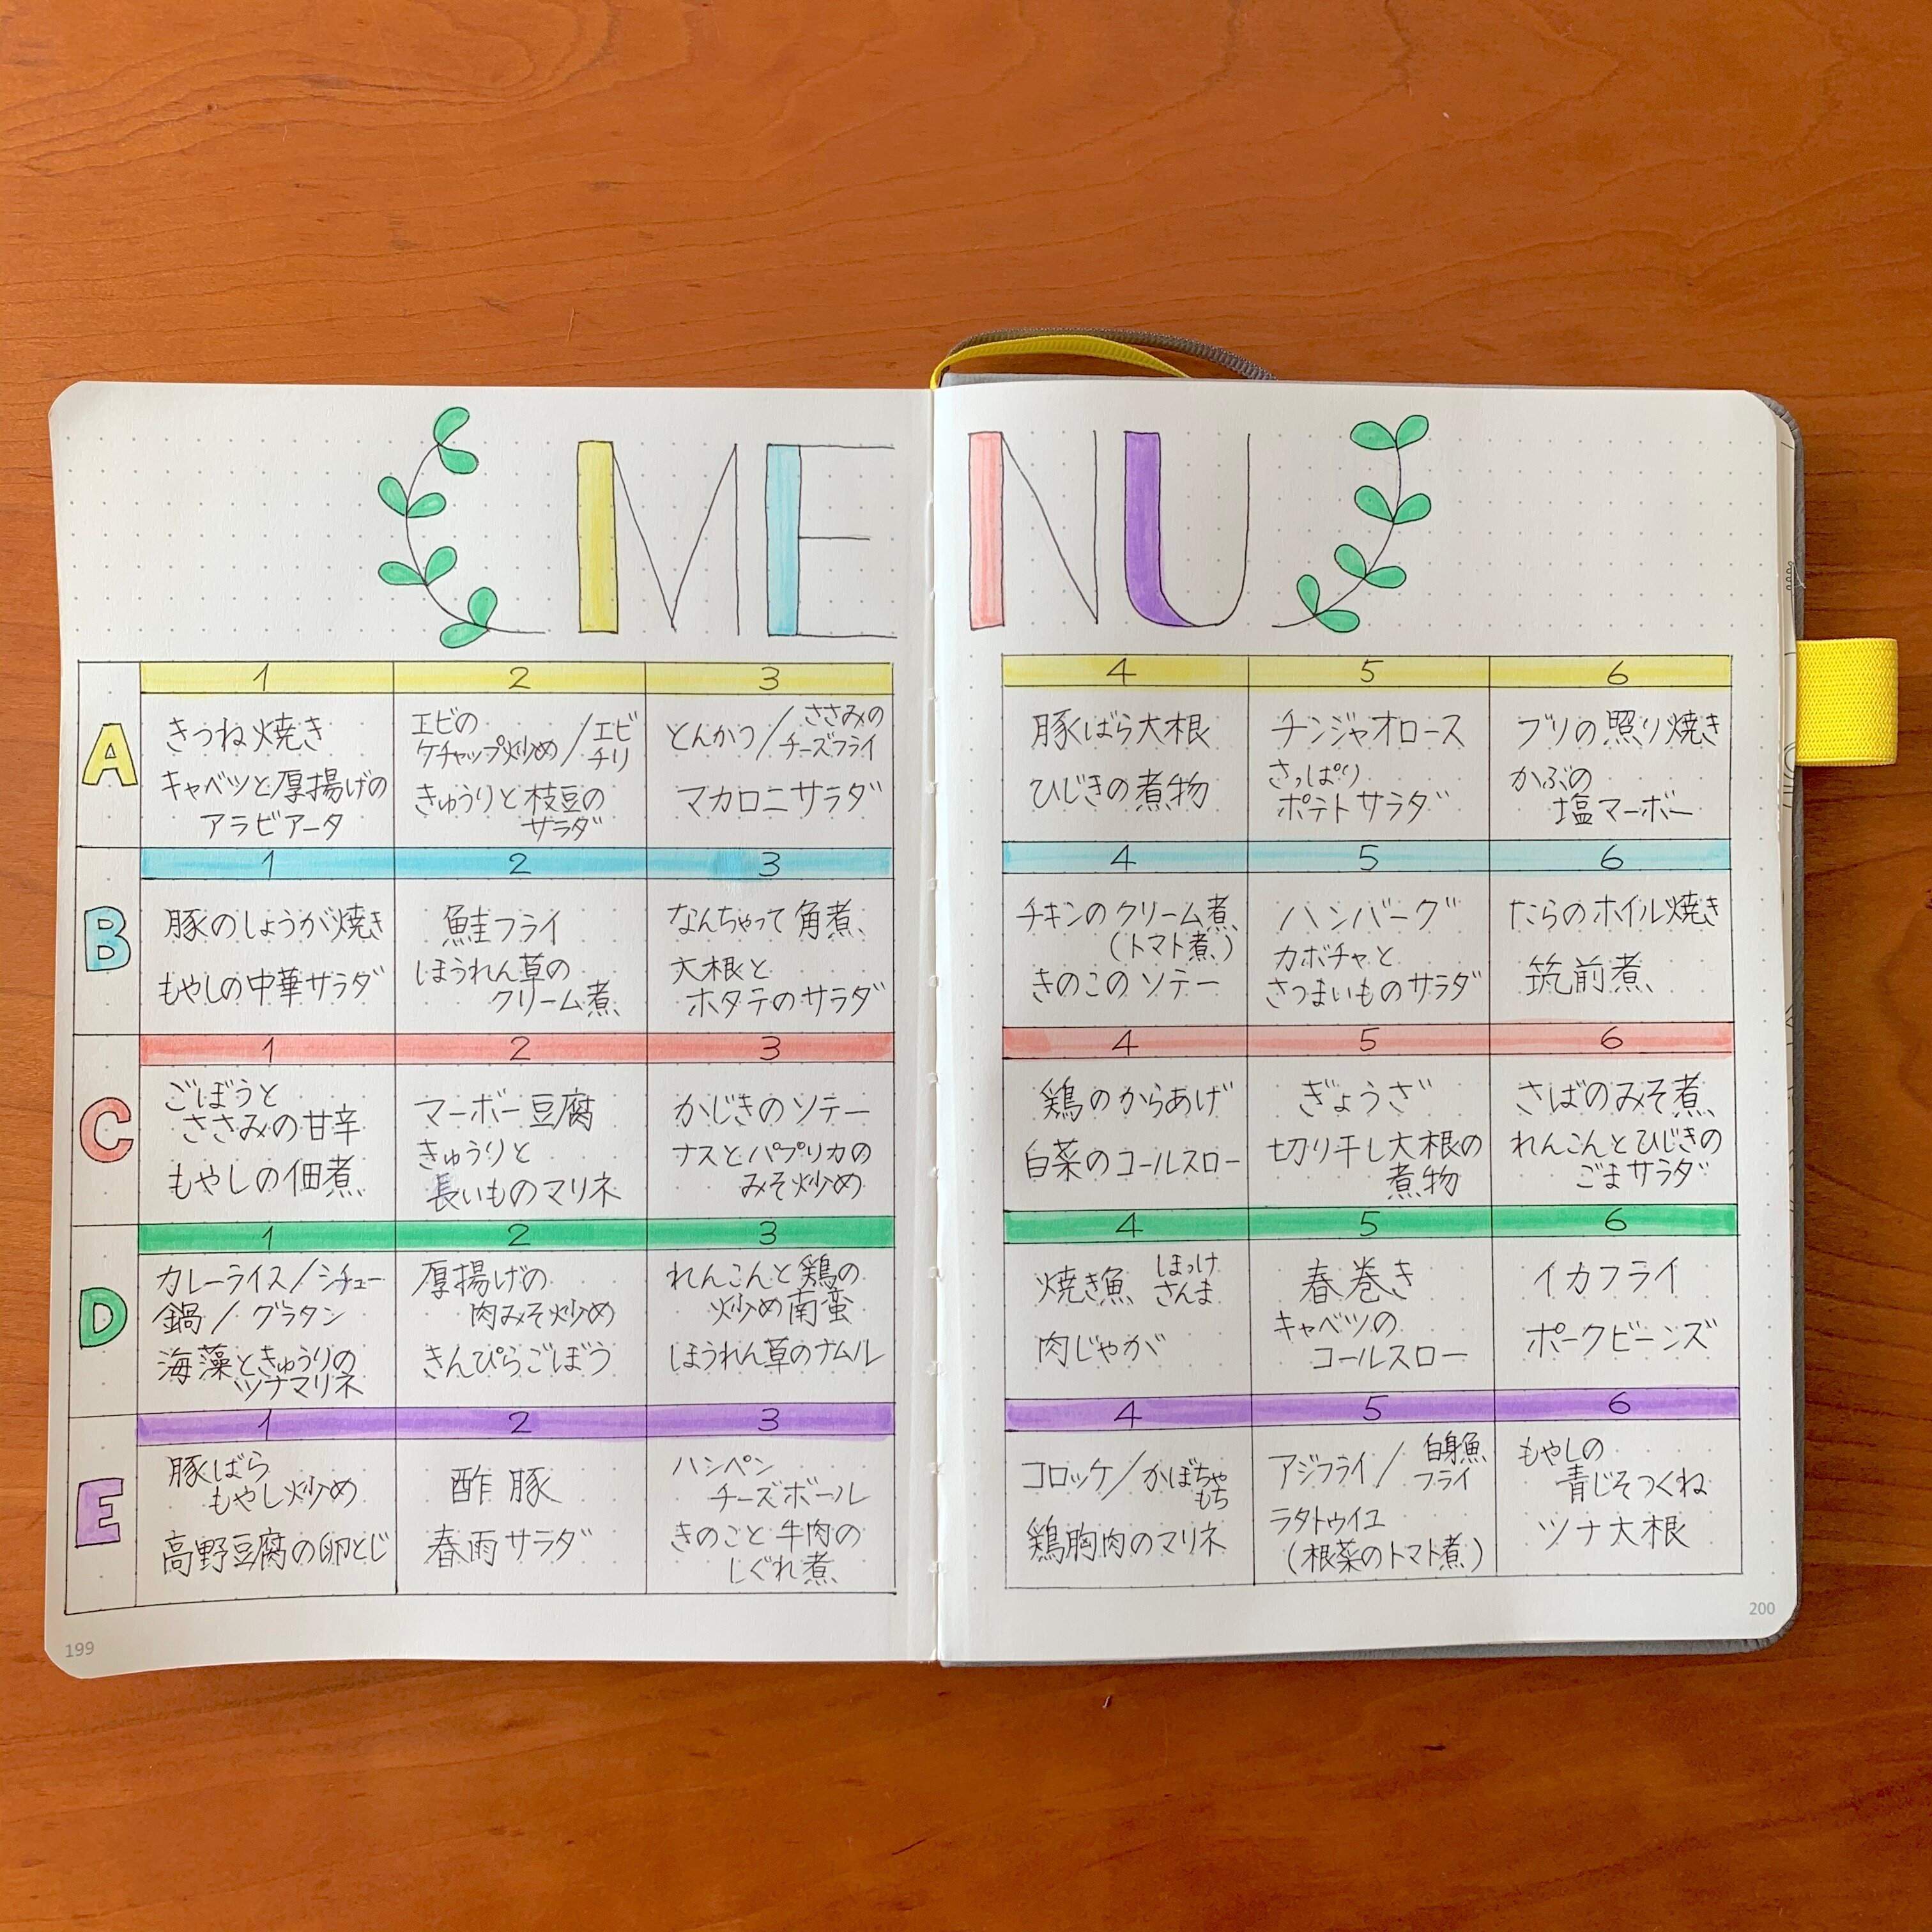 MENU
A
1 2 3 4 5 6
きつね焼き
キャベツと厚揚げの
アラビアータ
エビの
ケチャップ炒め/エビ
チリ
きゅうりと枝豆の
サラダ
とんかつ/ささみの
チーズフライ
マカロニサラダ
豚ばら大根
ひじきの煮物
チンジャオロース
さっぱり
ポテトサラダ
ブリの照り焼き
かぶの
塩マーボー
B
1 2 3 4 5 6
豚のしょうが焼き
もやしの中華サラダ
鮭フライ
ほうれん草の
クリーム煮
なんちゃって角煮
大根と
ホタテのサラダ
チキンのクリーム煮
(トマト煮)
きのこのソテー
ハンバーグ
カボチャと
さつまいものサラダ
たらのホイル焼き
筑前煮
C
1 2 3 4 5 6
ごぼうと
ささみの甘辛
もやしの佃煮
マーボー豆腐
きゅうりと
長いものマリネ
かじきのソテー
ナスとパプリカの
みそ炒め
鶏のからあげ
白菜のコールスロー
ぎょうざ
切り干し大根の
煮物
さばのみそ煮
れんこんとひじきの
ごまサラダ
D
1 2 3 4 5 6
カレーライス/シチュー
鍋/グラタン
海藻ときゅうりの
ツナマリネ
厚揚げの
肉みそ炒め
きんぴらごぼう
れんこんと鶏の
炒め南蛮
ほうれん草のナムル
焼き魚 ほっけ
さんま
肉じゃが
春巻き
キャベツの
コールスロー
イカフライ
ポークビーンズ
E
1 2 3 4 5 6
豚ばら
もやし炒め
高野豆腐の卵とじ
酢豚
春雨サラダ
ハンペン
チーズボール
きのこと牛肉の
しぐれ煮
コロッケ/かぼちゃ
もち
鶏胸肉のマリネ
アジフライ/白身魚
フライ
ラタトゥイユ
(根菜のトマト煮)
もやしの
青じそつくね
ツナ大根
199
200